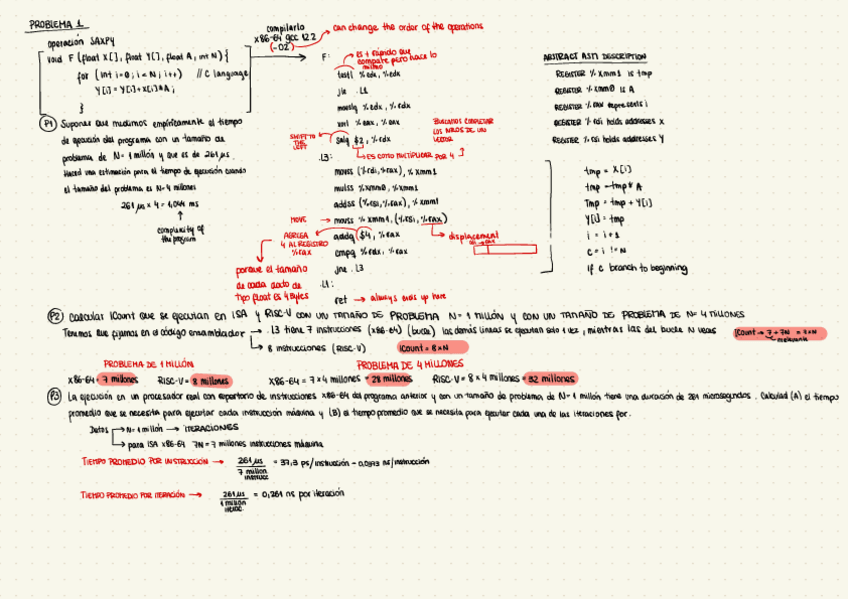 PROBLEMA 1
operación SAXPY
void F (float X[], float Y[], float A, int N) {
for (int i=0; i<N; i++) // C language
Y[i] = Y[i] + X[i] * A;
}
compilarlo
x86-64 gcc 12.2
(-O2)
can change the order of the operations
P1 Supones que medimos empíricamente el tiempo
de ejecución del programa con un tamaño de
problema de N=1 millón y que es de 261 µs.
Haced una estimación para el tiempo de ejecución cuando
el tamaño del problema es N=4 millones
261 µs x 4 = 1,044 ms
complexity of
the program
F:
es + rápido que
compate pero hace lo
mismo
testl %edx, %edx
jle .L1
movslq %edx, %rdx
xorl %eax, %eax
SHIFT TO
THE
LEFT
salq $2, %rdx
BUSCAMOS COMPLETAR
LOS NIROS DE UN
VECTOR
ES COMO MULTIPLICAR POR 4
.L3:
movss (%rdi,%rax), %xmm1
mulss %xmm0, %xmm1
addss (%rsi,%rax), %xmm1
MOVE
movss %xmm1, (%rsi, %rax)
AGREGA
4 AL REGISTRO
%rax
addq $4, %rax
displacement
cmpq %rdx, %rax
jne .L3
porque el tamaño
de cada dato de
tipo float es 4 Bytes
.L1:
ret → always ends up here
ABSTRACT ASM DESCRIPTION
REGISTER %xmm1 is tmp
REGISTER %xmm0 is A
REGISTER %rax represents i
REGISTER %rdi holds addresses X
REGISTER %rsi holds addresses Y
tmp = X[i]
tmp = tmp * A
Tmp = tmp + Y[i]
Y[i] = tmp
i = i+1
c = i != N
if c branch to beginning
P2 Calcular ICount que se ejecutan en ISA y RISC-V CON UN TAMAÑO DE PROBLEMA N=1 MILLÓN Y CON UN TAMAÑO DE PROBLEMA DE N=4 MILLONES
Tenemos que fijarnos en el código ensamblador → .L3 tiene 7 instrucciones (x86-64) (bucle) las demás líneas se ejecutan solo 1 vez, mientras las del bucle N veces
ICount → 7 + 7N
8 instrucciones (RISC-V)
ICount = 8×N
PROBLEMA DE 1 MILLÓN
PROBLEMA DE 4 MILLONES
X86-64 = 7 millones RISC-V = 8 millones
X86-64 = 7 x 4 millones = 28 millones RISC-V = 8 x 4 millones = 32 millones
P3 La ejecución en un procesador real con repertorio de instrucciones x86-64 del programa anterior y con un tamaño de problema de N=1 millón tiene una duración de 261 microsegundos. Calculad (A) el tiempo
promedio que se necesita para ejecutar cada instrucción máquina y (B) el tiempo promedio que se necesita para ejecutar cada una de las iteraciones for.
Datos → N=1 millón → ITERACIONES
para ISA x86-64 7N = 7 millones instrucciones máquina
TIEMPO PROMEDIO POR INSTRUCCIÓN → 261 µs / 7 millon instrucc = 37,3 ps/instrucción - 0,0373 ns/instrucción
TIEMPO PROMEDIO POR ITERACIÓN → 261 µs / 1 millón iterac. = 0,261 ns por iteración